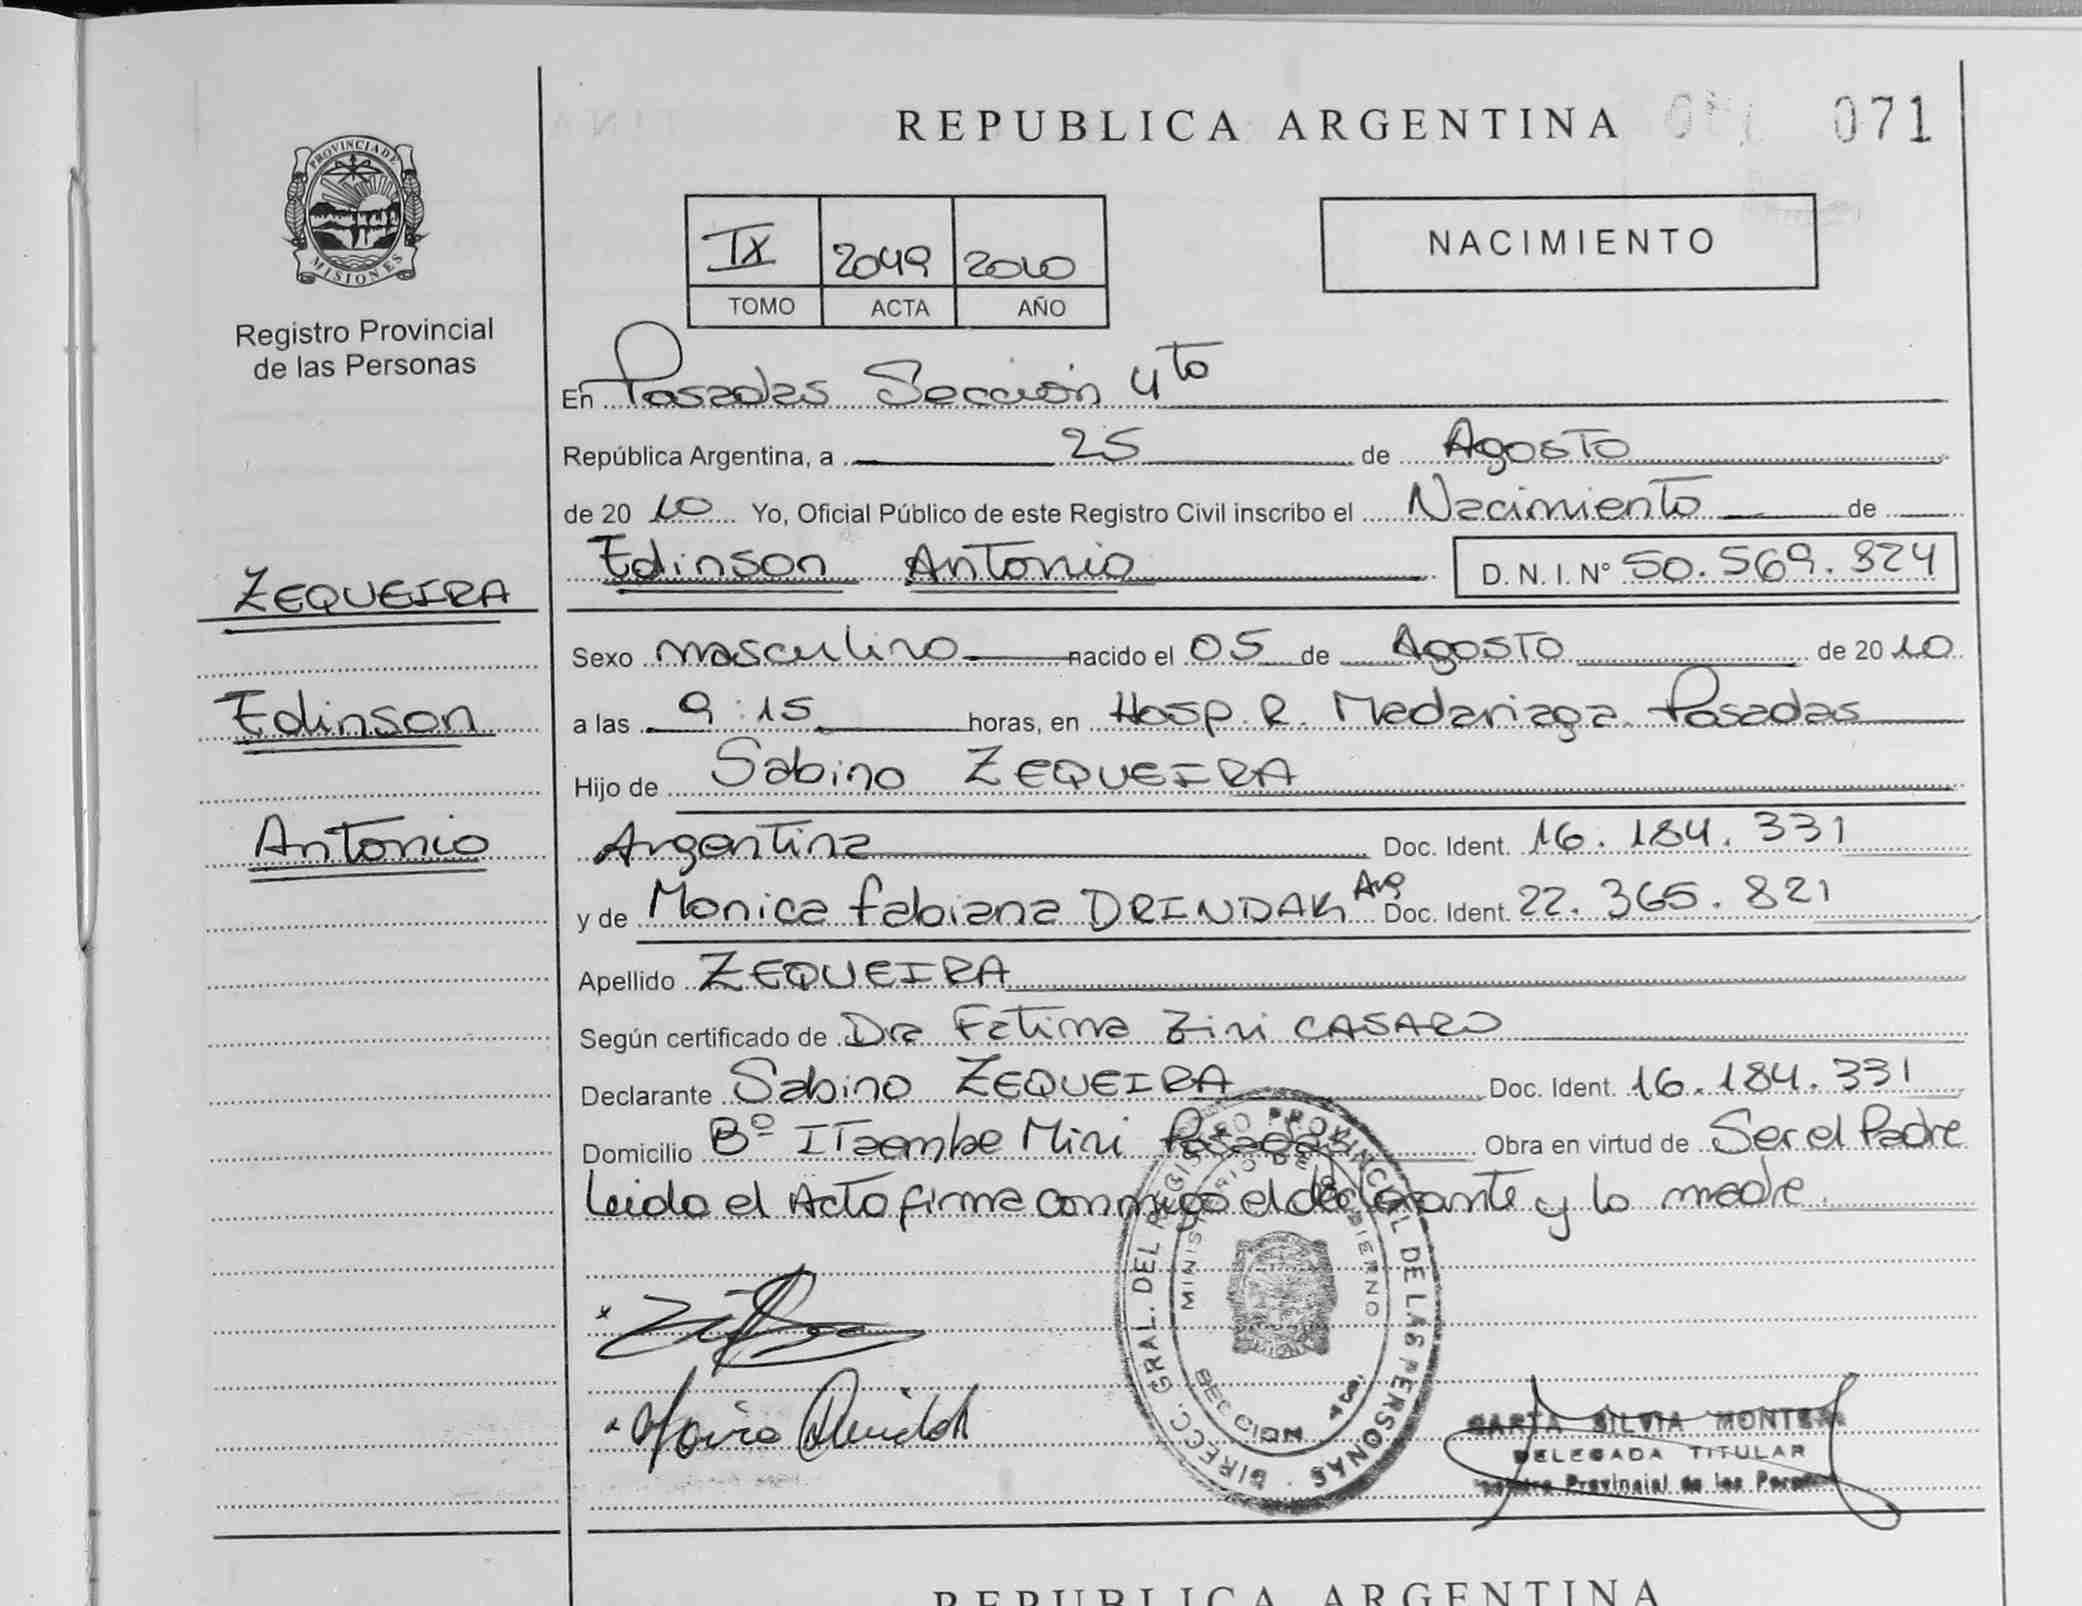 REPUBLICA ARGENTINA 071
PROVINCIA DE MISIONES
Registro Provincial
de las Personas
IX 2049 2010
TOMO ACTA AÑO
NACIMIENTO
En Posadas Sección 4to
República Argentina, a 25 de Agosto
de 2010 Yo, Oficial Público de este Registro Civil inscribo el Nacimiento de
Edinson Antonio D. N. I. Nº 50.569.824
ZEQUEIRA
Edinson
Antonio
Sexo masculino nacido el 05 de Agosto de 2010
a las 9:15 horas, en Hosp. R. Madariaga. Posadas
Hijo de Sabino ZEQUEIRA
Argentina Doc. Ident. 16.184.331
y de Monica fabiana DRINDAK Arg Doc. Ident. 22.365.821
Apellido ZEQUEIRA
Según certificado de Dra Fatima Zini CASARO
Declarante Sabino ZEQUEIRA Doc. Ident. 16.184.331
Domicilio Bº ITaembe Mini Posadas Obra en virtud de Ser el Padre
Leido el Acto firma conmigo el declarante y la madre.
DIRECC. GRAL. DEL REGISTRO PROVINCIAL DE LAS PERSONAS
MINISTERIO DE GOBIERNO
SECCION 4ta.
SILVIA
DELEGADA TITULAR
Provincial de las
REPUBLICA ARGENTINA